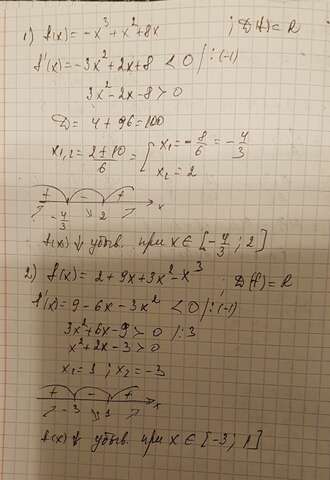 1) f(x) = -x³ + x² + 8x ; D(f) = R
f'(x) = -3x² + 2x + 8 < 0 /:(-1)
3x² - 2x - 8 > 0
D = 4 + 96 = 100
x₁,₂ = (2 ± 10)/6 = [ x₁ = -8/6 = -4/3
x₂ = 2
+ - +
-4/3 2 x
f(x) ↓ убыв. при x ∈ [-4/3 ; 2]
2) f(x) = 2 + 9x + 3x² - x³ ; D(f) = R
f'(x) = 9 - 6x - 3x² < 0 /:(-1)
3x² + 6x - 9 > 0 /:3
x² + 2x - 3 > 0
x₁ = 1 ; x₂ = -3
+ - +
-3 1 x
f(x) ↓ убыв. при x ∈ [-3 ; 1]